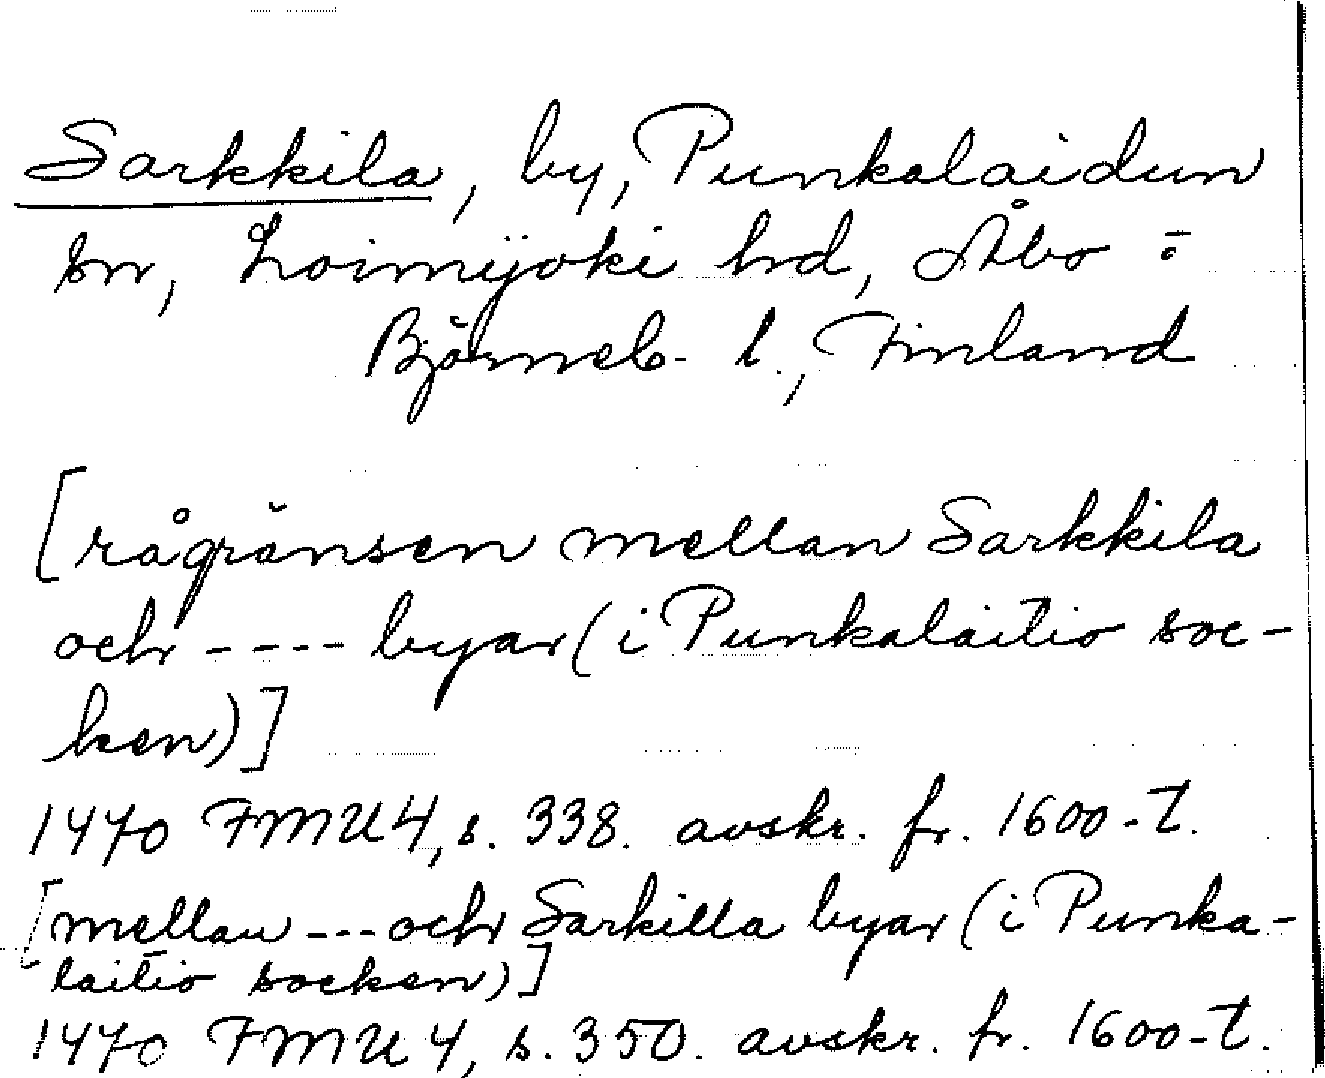 Sarkkila, by, Punkalaidun
sn, Loimijoki hd, Åbo o
Björneb. l., Finland
[rågränsen mellan Sarkkila
och ---- byar (i Punkalaitio soc-
ken)]
1470 FMU 4, s. 338. avskr. fr. 1600-t.
[mellan --- och Sarkilla byar (i Punka-
laitio socken)]
1470 FMU 4, s. 350. avskr. fr. 1600-t.